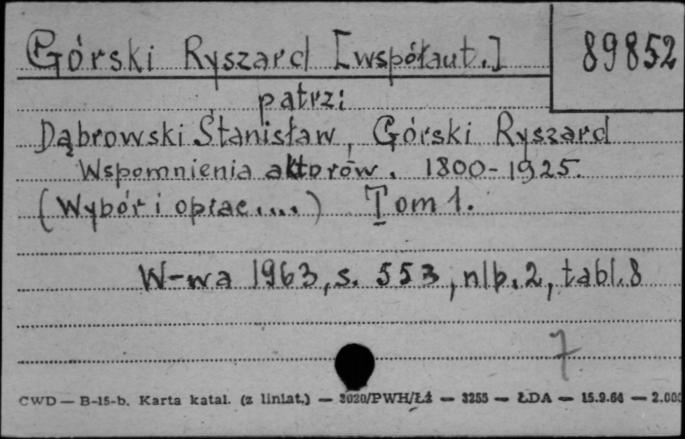 Górski Ryszard [współaut.]
89852
patrz:
Dąbrowski Stanisław, Górski Ryszard
Wspomnienia aktorów. 1800-1925.
(Wybór i oprac....) Tom 1.
W-wa 1963, s. 553, nlb. 2, tabl. 8
7
CWD — B-15-b. Karta katal. (z liniat.) — 3020/PWH/Łż — 3255 — ŁDA — 15.9.66 — 2.000